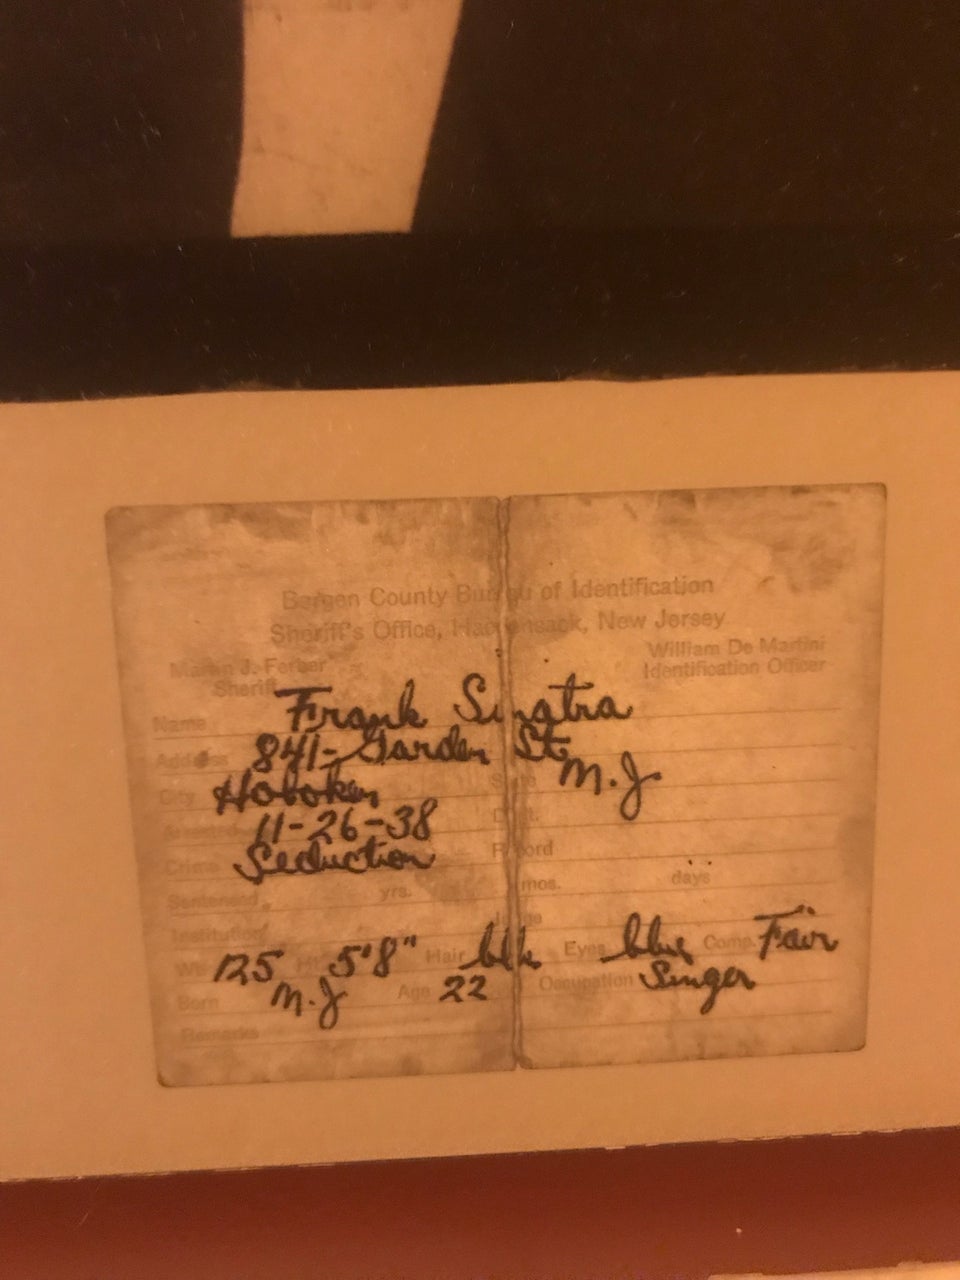 Bergen County Bureau of Identification
Sheriff's Office, Hackensack, New Jersey
Martin J. Ferber William De Martini
Sheriff Identification Officer
Name Frank Sinatra
Address 841- Garden St.
City Hoboken State N.J.
Arrested 11-26-38 Dept.
Crime Seduction Record
Sentenced yrs. mos. days
Institution
Wt. 125 Ht. 5'8" Hair blk Eyes blue Comp. Fair
Born N.J Age 22 Occupation Singer
Remarks